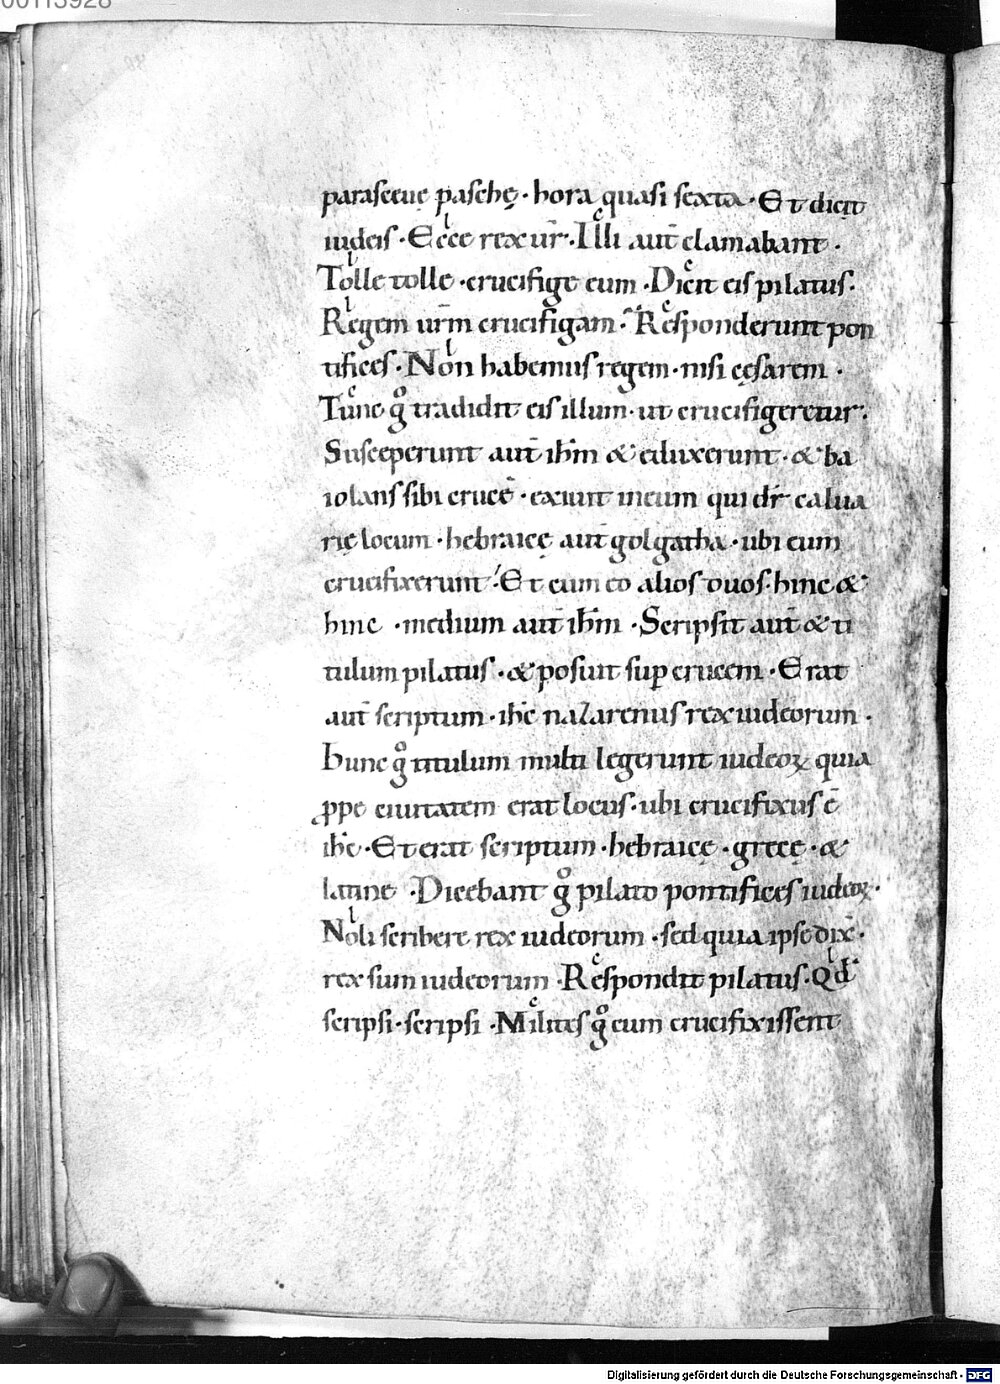 00113928
parasceuę paschę · hora quasi sexta · Et dicit
iudeis · Ecce rex ur̄ · Illi aut̄ clamabant ·
Tolle tolle · crucifige eum · Dicit eis pilatus ·
Regem ur̄m crucifigam · Responderunt pon
tifices · Non habemus regem · nisi cęsarem ·
Tunc gͦ tradidit eis illum · ut crucifigeretur ·
Susceperunt aut̄ ihm̄ & eduxerunt · & ba
iolans sibi crucē · exiuit in eum qui dr̄ calua
rię locum · hebraicę aut̄ golgatha · ubi eum
crucifixerunt · Et cum eo alios duos · hinc &
hinc · medium aut̄ ihm̄ · Scripsit aut̄ & ti
tulum pilatus · & posuit suꝑ crucem · Erat
aut̄ scriptum · ihc̄ nazarenus rex iudeorum ·
Hunc gͦ titulum multi legerunt iudeoꝝ quia
ꝓpe ciuitatem erat locus · ubi crucifixus ē
ihc̄ · Et erat scriptum · hebraicę · grecę · &
latine · Dicebant gͦ pilato pontifices iudeoꝝ ·
Noli scribere rex iudeorum · sed quia ipse dix̄ ·
rex sum iudeorum · Respondit pilatus · Qd̄
scripsi · scripsi · Milites gͦ cum crucifixissent
Digitalisierung gefördert durch die Deutsche Forschungsgemeinschaft - DFG